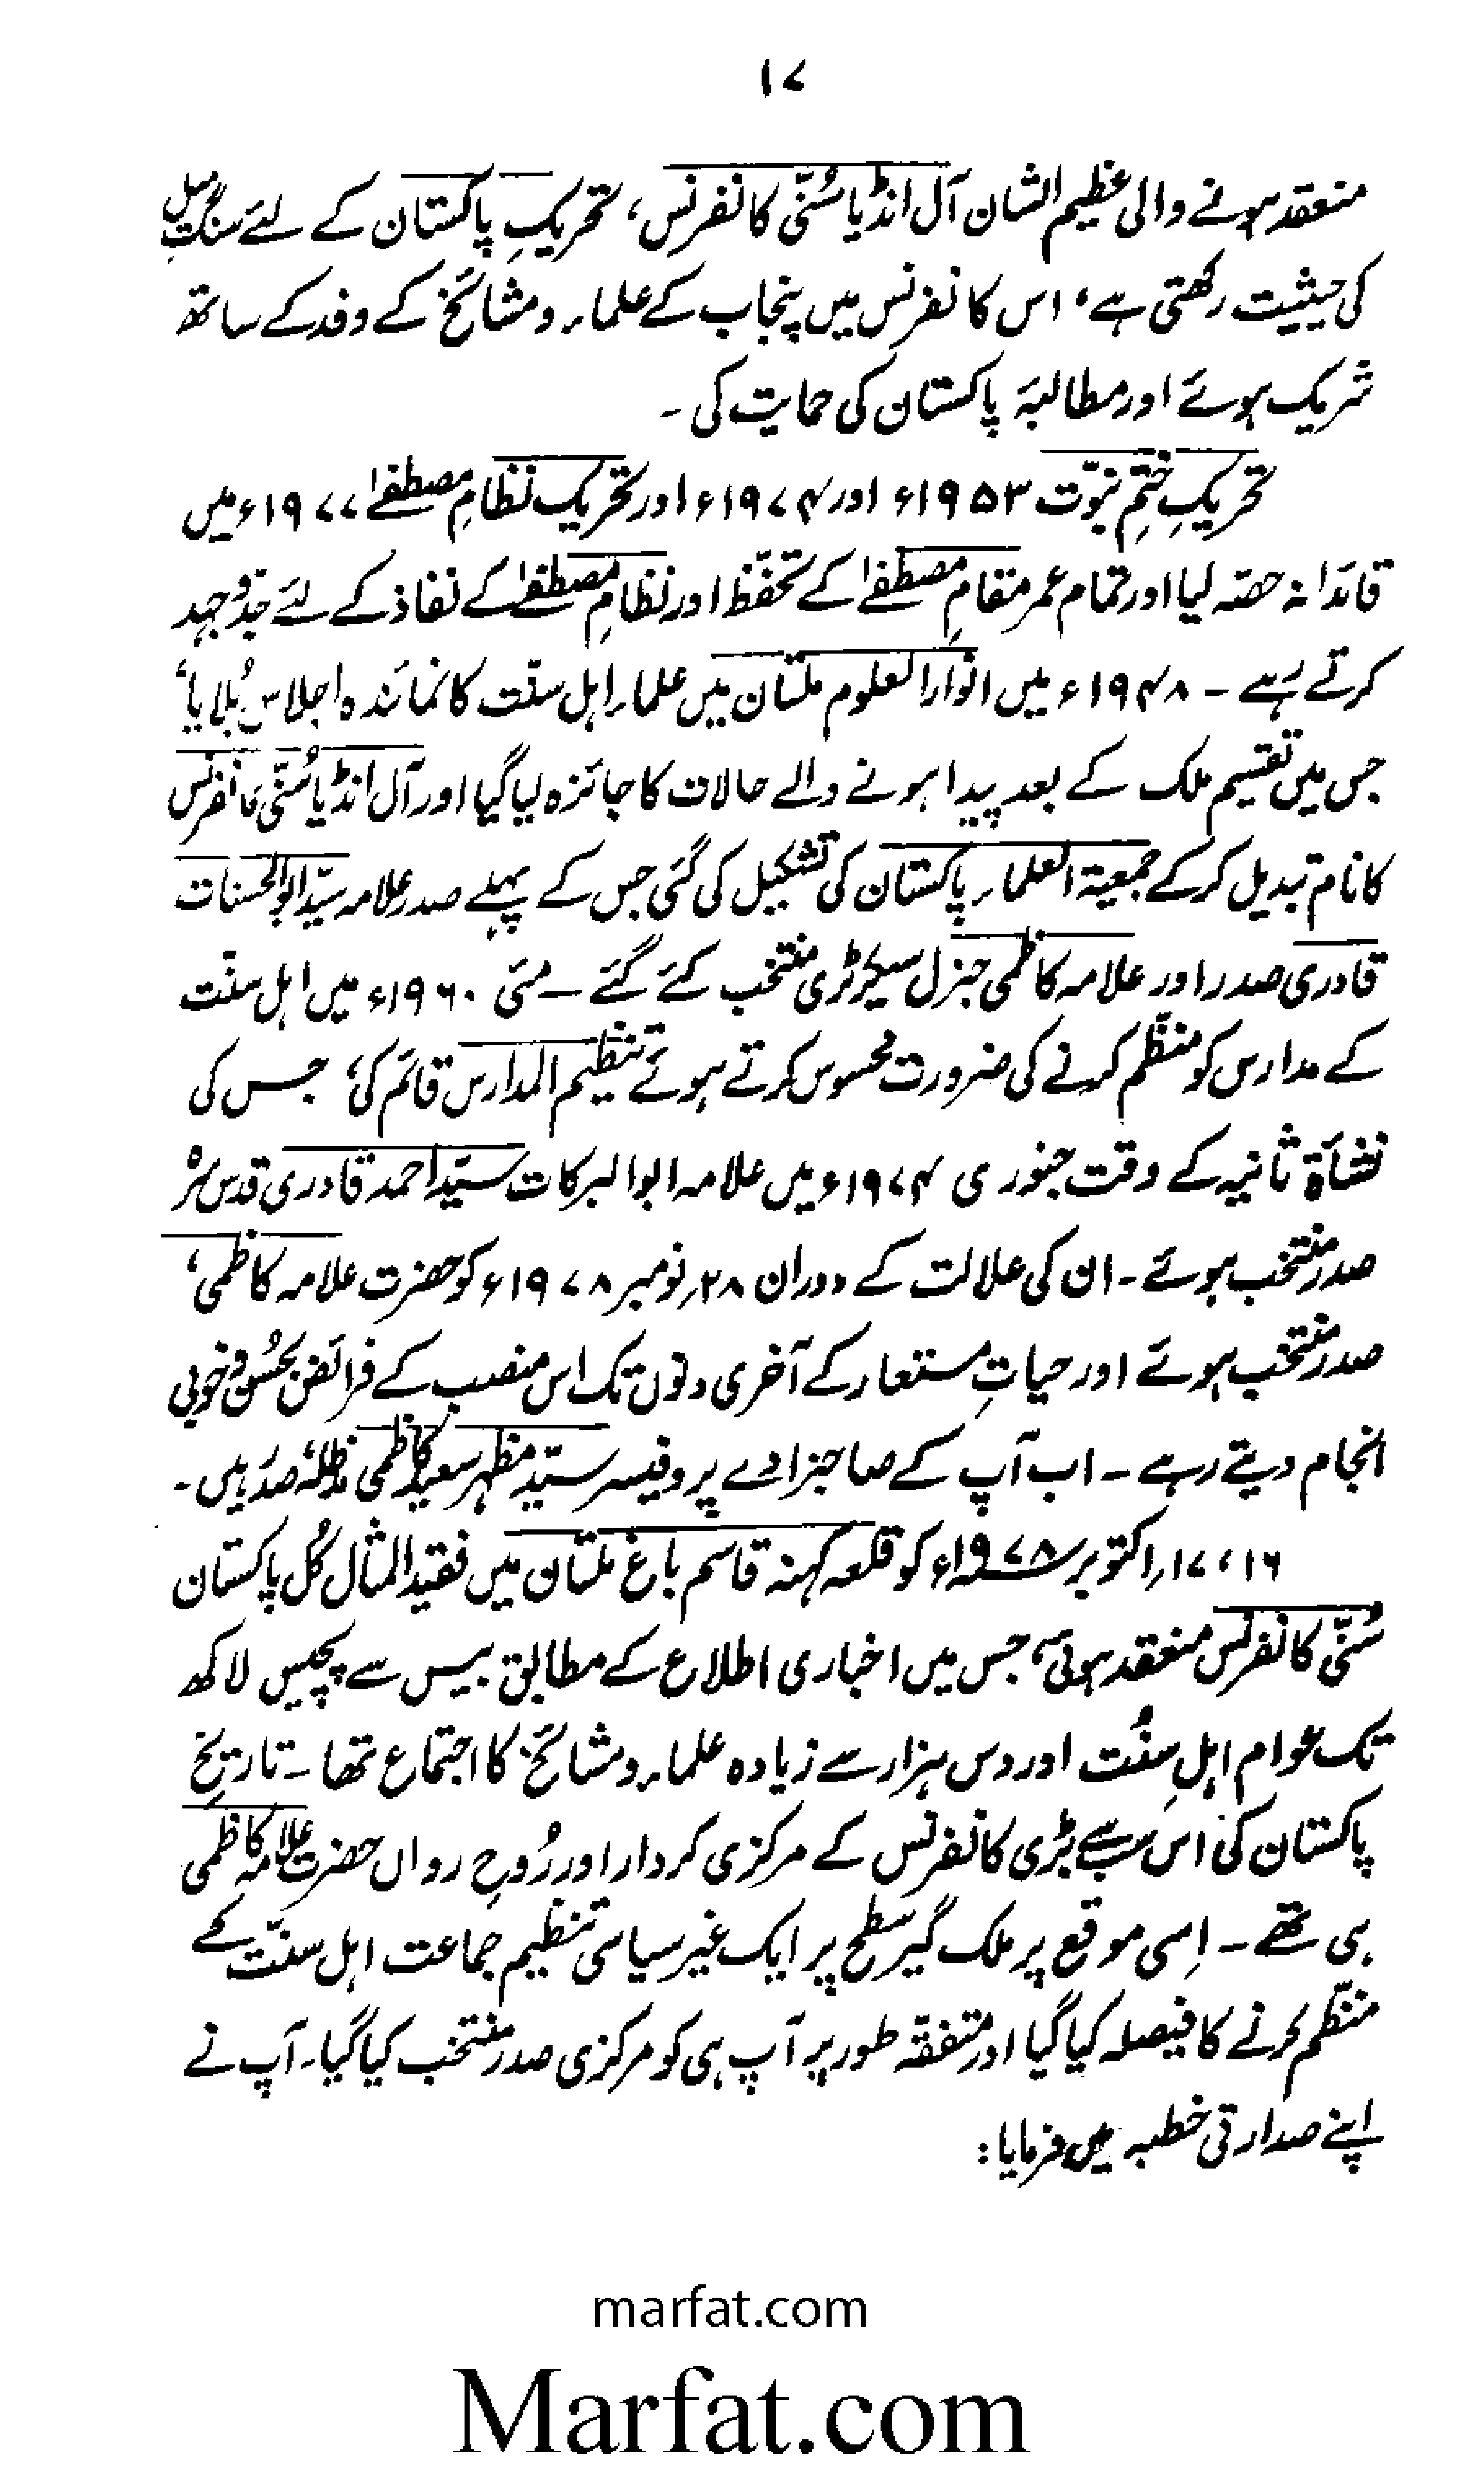 ۱۷
منعقد ہونے والی عظیم الشان آل انڈیا سُنّی کانفرنس، تحریکِ پاکستان کے لئے سنگِ میل
کی حیثیت رکھتی ہے، اس کانفرنس میں پنجاب کے علماء و مشائخ کے وفد کے ساتھ
شریک ہوئے اور مطالبۂ پاکستان کی حمایت کی۔
تحریکِ ختمِ نبوّت ۱۹۵۳ء اور ۱۹۷۴ء اور تحریک نظامِ مصطفےٰ ۱۹۷۷ء میں
قائدانہ حصّہ لیا اور تمام عمر مقامِ مصطفےٰ کے تحفّظ اور نظامِ مصطفےٰ کے نفاذ کے لئے جدّوجہد
کرتے رہے۔ ۱۹۴۸ء میں انوار العلوم ملتان میں علماءِ اہل سنّت کا نمائندہ اجلاس بُلایا،
جس میں تقسیم ملک کے بعد پیدا ہونے والے حالات کا جائزہ لیا گیا اور آل انڈیا سُنّی کانفرنس
کا نام تبدیل کرکے جمعیۃ العلماء پاکستان کی تشکیل کی گئی جس کے پہلے صدر علامہ سیّد ابوالحسنات
قادری صدر اور علامہ کاظمی جنرل سیکرٹری منتخب کئے گئے ۔ مئی ۱۹۶۰ء میں اہل سنّت
کے مدارس کو منظّم کرنے کی ضرورت محسوس کرتے ہوئے تنظیم المدارس قائم کی، جس کی
نشأۃ ثانیہ کے وقت جنوری ۱۹۷۴ء میں علامہ ابوالبرکات سیّد احمد قادری قدس سرّہٗ
صدر منتخب ہوئے۔ ان کی علالت کے دوران ۲۸؍نومبر ۱۹۷۸ء کو حضرت علامہ کاظمی،
صدر منتخب ہوئے اور حیاتِ مستعار کے آخری دنوں تک اس منصب کے فرائض بحُسن و خوبی
انجام دیتے رہے۔ اب آپ کے صاحبزادے پروفیسر سیّد مظہر سعید کاظمی مدظلہٗ صدر ہیں۔
۱۶، ۱۷؍اکتوبر ۱۹۷۸ء کو قلعہ کہنہ قاسم باغ ملتان میں فقید المثال کُل پاکستان
سُنّی کانفرنس منعقد ہوئی، جس میں اخباری اطلاع کے مطابق بیس سے پچیس لاکھ
تک عوام اہلِ سنّت اور دس ہزار سے زیادہ علماء و مشائخ کا اجتماع تھا۔ تاریخِ
پاکستان کی اس سب سے بڑی کانفرنس کے مرکزی کردار اور رُوحِ رواں حضرت علامہ کاظمی
ہی تھے۔ اِسی موقع پر ملک گیر سطح پر ایک غیر سیاسی تنظیم جماعت اہل سنّت کے
منظّم کرنے کا فیصلہ کیا گیا اور متفقہ طور پر آپ ہی کو مرکزی صدر منتخب کیا گیا۔ آپ نے
اپنے صدارتی خطبہ میں فرمایا:
marfat.com
Marfat.com